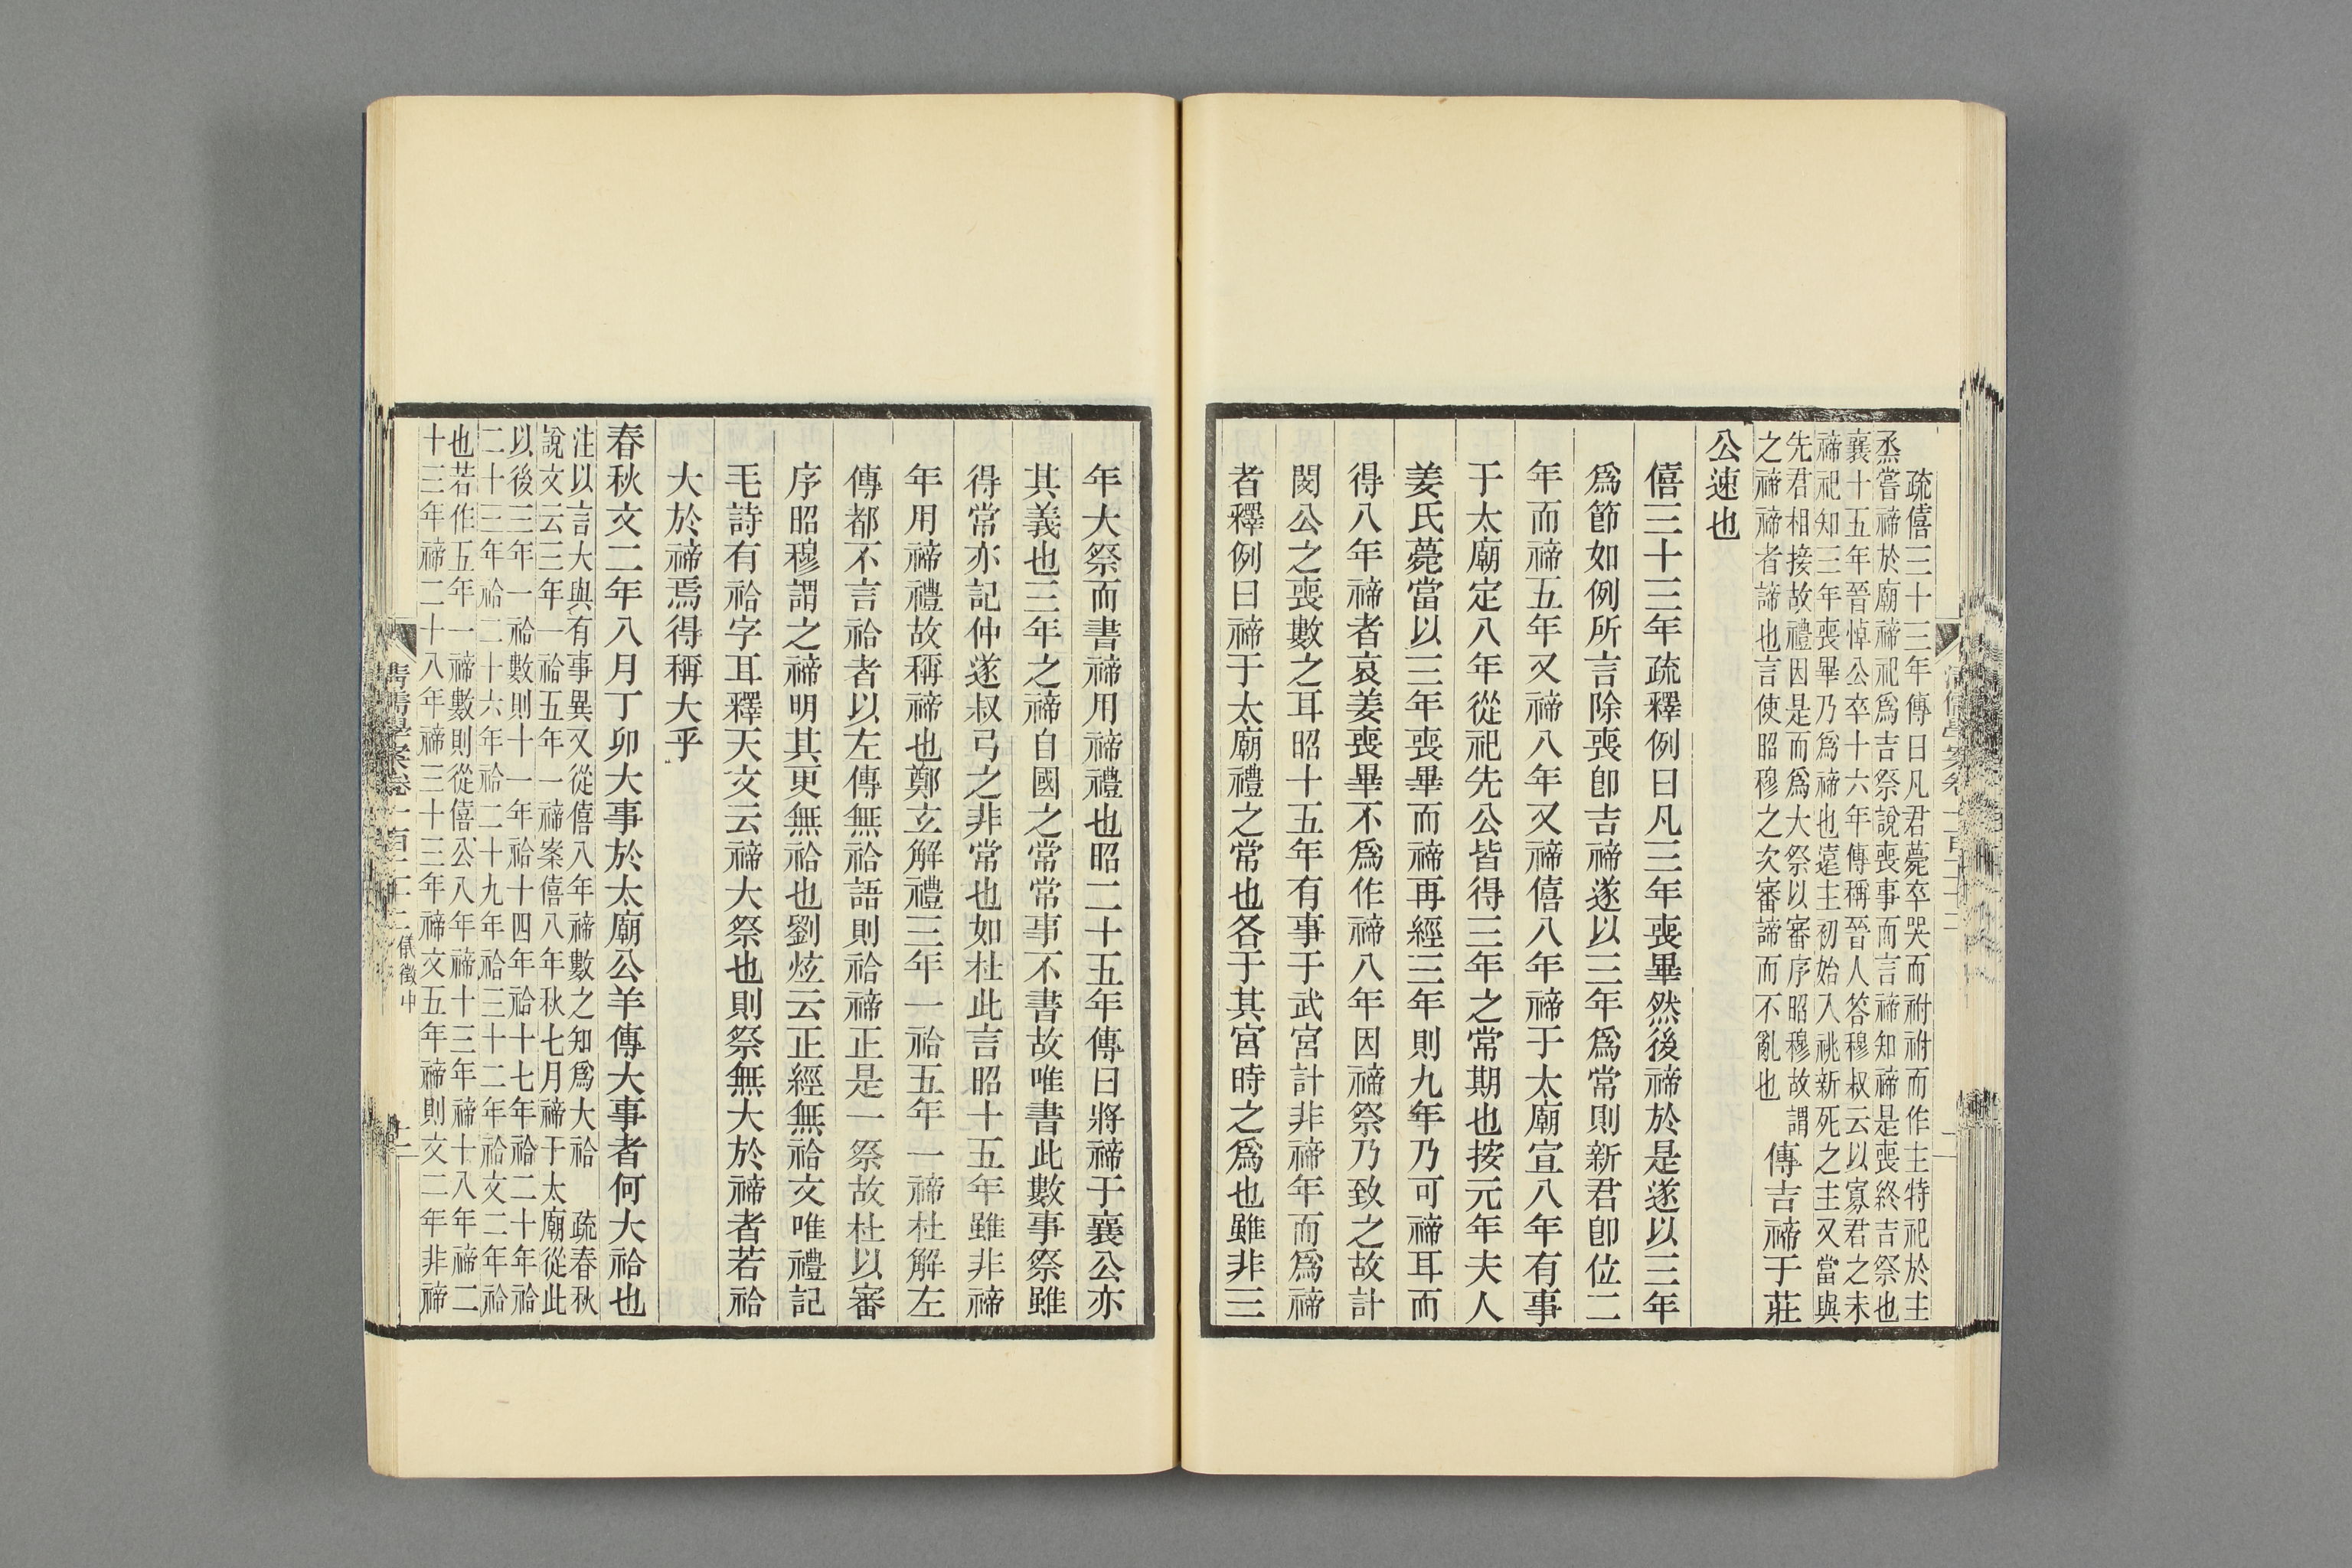 疏僖三十三年傳曰凡君薨卒哭而祔祔而作主特祀於主
烝嘗禘於廟禘祀爲吉祭說喪事而言禘知禘是喪終吉祭也
襄十五年晉悼公卒十六年傳稱晉人答穆叔云以寡君之未
禘祀知三年喪畢乃爲禘也遠主初始入祧新死之主又當與
先君相接故禮因是而爲大祭以審序昭穆故謂
之禘禘者諦也言使昭穆之次審諦而不亂也
傳吉禘于莊
公速也
僖三十三年疏釋例曰凡三年喪畢然後禘於是遂以三年
爲節如例所言除喪卽吉禘遂以三年爲常則新君卽位二
年而禘五年又禘八年又禘僖八年禘于太廟宣八年有事
于太廟定八年從祀先公皆得三年之常期也按元年夫人
姜氏薨當以三年喪畢而禘再經三年則九年乃可禘耳而
得八年禘者哀姜喪畢不爲作禘八年因禘祭乃致之故計
閔公之喪數之耳昭十五年有事于武宮計非禘年而爲禘
者釋例曰禘于太廟禮之常也各于其宮時之爲也雖非三
年大祭而書禘用禘禮也昭二十五年傳曰將禘于襄公亦
其義也三年之禘自國之常常事不書故唯書此數事祭雖
得常亦記仲遂叔弓之非常也如杜此言昭十五年雖非禘
年用禘禮故稱禘也鄭玄解禮三年一祫五年一禘杜解左
傳都不言祫者以左傳無祫語則祫禘正是一祭故杜以審
序昭穆謂之禘明其更無祫也劉炫云正經無祫文唯禮記
毛詩有祫字耳釋天文云禘大祭也則祭無大於禘者若祫
大於禘焉得稱大乎
春秋文二年八月丁卯大事於太廟公羊傳大事者何大祫也
注以言大與有事異又從僖八年禘數之知爲大祫　疏春秋
說文云三年一祫五年一禘案僖八年秋七月禘于太廟從此
以後三年一祫數則十一年祫十四年祫十七年祫二十年祫
二十三年祫二十六年祫二十九年祫三十二年祫文二年祫
也若作五年一禘數則從僖公八年禘十三年禘十八年禘二
十三年禘二十八年禘三十三年禘文五年禘則文二年非禘
清儒學案卷一百二十二儀徵中
二